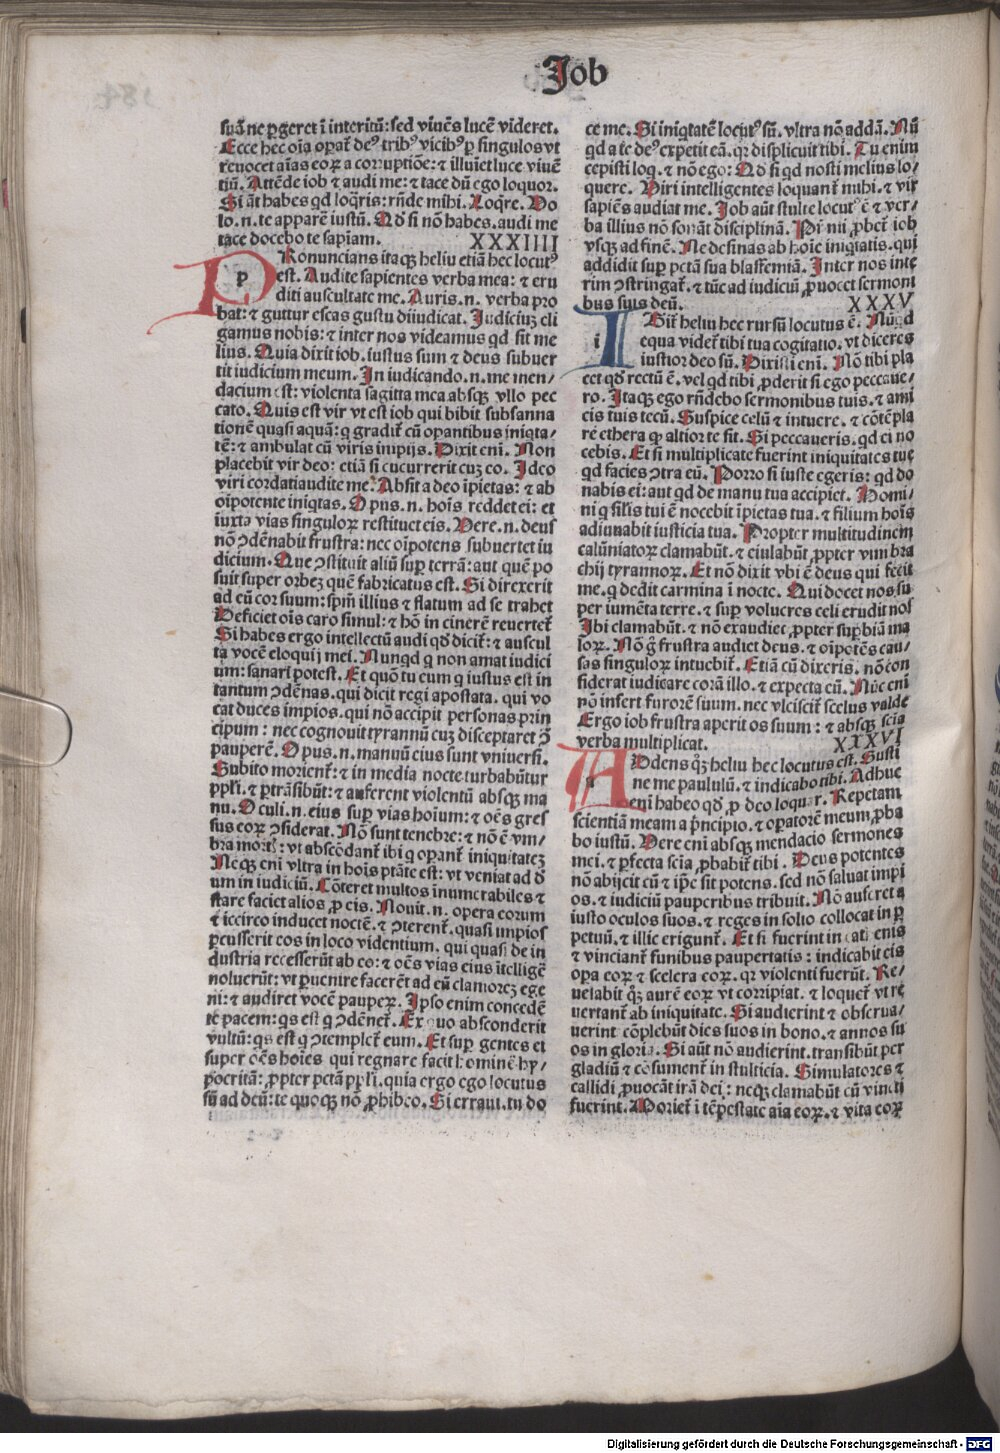 Job
suā ne ꝑgeret ī interitū: sed viuēs lucē videret.
Ecce hec oīa oꝑat᷑ deꝰ tribꝰ vicibꝰ ꝑ singulos vt
reuocet aīas eoꝝ a corruptiōe: ⁊ illuīet luce viuē
tiū. Attēde iob ⁊ audi me: ⁊ tace dū ego loquor.
Si āt habes qd loq̄ris: rn̄de mihi. Loq̄re. Vo
lo .n. te apparē iustū. Qd si nō habes. audi me
tace docebo te sapīam. XXXIIII
PRonuncians itaqꝫ heliu etiā hec locutꝰ
p est. Audite sapientes verba mea: ⁊ eru
diti auscultate me. Auris .n. verba pro
bat: ⁊ guttur escas gustu diiudicat. Judiciuꝫ eli
gamus nobis: ⁊ inter nos videamus qd sit me
lius. Quia dixit iob. iustus sum ⁊ deus subuer
tit iudicium meum. In iudicando .n. me men/
dacium est: violenta sagitta mea absqꝫ vllo pec
cato. Quis est vir vt est iob qui bibit subsanna
tionē quasi aquā: q gradit᷑ cū oꝑantibus iniqta/
tē: ⁊ ambulat cū viris impijs. Dixit enī. Non
placebit vir deo: etiā si cucurrerit cuꝫ eo. Ideo
viri cordati audite me. Absit a deo īpietas: ⁊ ab
oīpotente iniqtas. Opus .n. hoīs reddet ei: et
iuxta vias singuloꝝ restituet eis. Vere .n. deus
nō ꝯdēnabit frustra: nec oīpotens subuertet iu
dicium. Quē ꝯstituit aliū suꝑ terrā: aut quē po
suit super orbeꝫ quē fabricatus est. Si direxerit
ad eū cor suum: spm̄ illius ⁊ flatum ad se trahet
Deficiet oīs caro simul: ⁊ hō in cinerē reuertet᷑
Si habes ergo intellectū audi qd dicit᷑: ⁊ auscul
ta vocē eloquij mei. Nunqd q non amat iudici
um: sanari potest. Et quō tu eum q iustus est in
tantum ꝯdēnas. qui dicit regi apostata. qui vo
cat duces impios. qui nō accipit personas prin
cipum: nec cognouit tyrannū cuꝫ disceptaret ꝯ̄
pauperē. Opus .n. manuū eius sunt vniuersi.
Subito morient᷑: ⁊ in media nocte turbabūtur
ppl̄i. ⁊ ꝑtrāsibūt: ⁊ auferent violentū absqꝫ ma
nu. Oculi .n. eius suꝑ vias hoīum: ⁊ oēs gres
sus eoꝝ ꝯsiderat. Nō sunt tenebre: ⁊ nō ē vm/
bra mortis: vt abscōdant᷑ ibi q oꝑant᷑ iniquitateꝫ
Neqꝫ enī vltra in hoīs ptāte est: vt veniat ad d̄
um in iudiciū. Cōteret multos īnumerabiles ⁊
stare faciet alios ꝓ eis. Nouit .n. opera eorum
⁊ iccirco inducet noctē. ⁊ ꝯterent᷑. quasi impios
ꝑcusserit eos in loco videntium. qui quasi de in
dustria recesserūt ab eo: ⁊ oēs vias eius ītelligē
noluerūt: vt ꝑuenire facerēt ad eū clamoreꝫ ege
ni: ⁊ audiret vocē pauperꝝ. Ipso enim concedē
te pacem: qs est q ꝯdēnet. Ex quo absconderit
vultū: qs est q ꝯtemplet᷑ eum. Et suꝑ gentes et
super oēs hoīes qui regnare facit hominē hy/
pocritā: ꝓpter pctā ppl̄i. quia ergo ego locutus
sū ad deū: te quoqꝫ nō ꝓhibeo. Si erraui. tu do
ce me. Si iniqtatē locutꝰ sū. vltra nō addā. Nū
qd a te deꝰ expetit eā. qꝛ displicuit tibi. Tu enim
cepisti loq. ⁊ nō ego: Qd si qd nosti melius lo/
quere. Viri intelligentes loquant᷑ mihi. ⁊ vir
sapiēs audiat me. Job aūt stulte locutꝰ ē ⁊ ver/
ba illius nō sonāt disciplinā. Pr̄ mi ꝓbet᷑ iob
vsqꝫ ad finē. Ne desinas ab hoīe iniqtatis. qui
addidit suꝑ pctā sua blasfemiā. Inter nos inte
rim ꝯstringat᷑. ⁊ tūc ad iudiciū ꝓuocet sermoni
bus suis deū. XXXV
IGit᷑ heliu hec rursū locutus ē. Nūqd
i equa videt᷑ tibi tua cogitatio. vt diceres
iustior deo sū. Dixisti enī. Nō tibi pla
cet qd rectū ē. vel qd tibi ꝓderit si ego peccaue/
ro. Itaqꝫ ego rn̄debo sermonibus tuis. ⁊ ami
cis tuis tecū. Suspice celū ⁊ intuere. ⁊ cōtēpla
re ethera ꝙ altior te sit. Si peccaueris. qd ei no
cebis. Et si multiplicate fuerint iniquitates tue
qd facies ꝯtra eū. Porro si iuste egeris: qd do
nabis ei: aut qd de manu tua accipiet. Homi/
ni q silis tui ē nocebit īpietas tua. ⁊ filium hoīs
adiuuabit iusticia tua. Propter multitudinem
calūniatoꝝ clamabūt. ⁊ eiulabūt ꝓpter vim bra
chij tyrannoꝝ. Et nō dixit vbi ē deus qui fecit
me. q dedit carmina ī nocte. Qui docet nos su
per iumēta terre. ⁊ suꝑ volucres celi erudit nos
Ibi clamabūt. ⁊ nō exaudiet ꝓpter suꝑbiā ma
loꝝ. Nō g̊ frustra audiet deus. ⁊ oīpotēs cau/
sas singuloꝝ intuebit᷑. Etiā cū dixeris. nō con
siderat iudicare corā illo. ⁊ expecta eū. Nūc enī
nō infert furorē suum. nec vlciscit᷑ scelus valde
Ergo iob frustra aperit os suum: ⁊ absqꝫ scīa
verba multiplicat. XXXVI
ADdens q̊ꝫ heliu hec locutus est. Susti
a ne me paululū. ⁊ indicabo tibi. Adhuc
enī habeo qd ꝓ deo loquar. Repetam
scientiā meam a p̄ncipio. ⁊ oꝑatorē meum ꝓba
bo iustū. Vere enī absqꝫ mendacio sermones
mei. ⁊ ꝑfecta scīa ꝓbabit᷑ tibi. Deus potentes
nō abijcit cū ⁊ ip̄e sit potens. sed nō saluat impi
os. ⁊ iudiciū pauperibus tribuit. Nō auferet a
iusto oculos suos. ⁊ reges in solio collocat in ꝑ
petuū. ⁊ illic erigunt᷑. Et si fuerint in catenis
⁊ vinciant᷑ funibus paupertatis: indicabit eis
oꝑa eoꝝ ⁊ scelera eoꝝ. qꝛ violenti fuerūt. Re/
uelabit q̊ꝫ aurē eoꝝ vt corripiat. ⁊ loquet᷑ vt re
uertant᷑ ab iniquitate. Si audierint ⁊ obserua/
uerint cōplebūt dies suos in bono. ⁊ annos su
os in gloria. Si aūt nō audierint. transibūt per
gladiū ⁊ cōsument᷑ in stulticia. Simulatores ⁊
callidi ꝓuocāt irā dei: neqꝫ clamabūt cū vincti
fuerint. Moriet᷑ ī tēpestate aīa eoꝝ. ⁊ vita eoꝝ
Digitalisierung gefördert durch die Deutsche Forschungsgemeinschaft - DFG